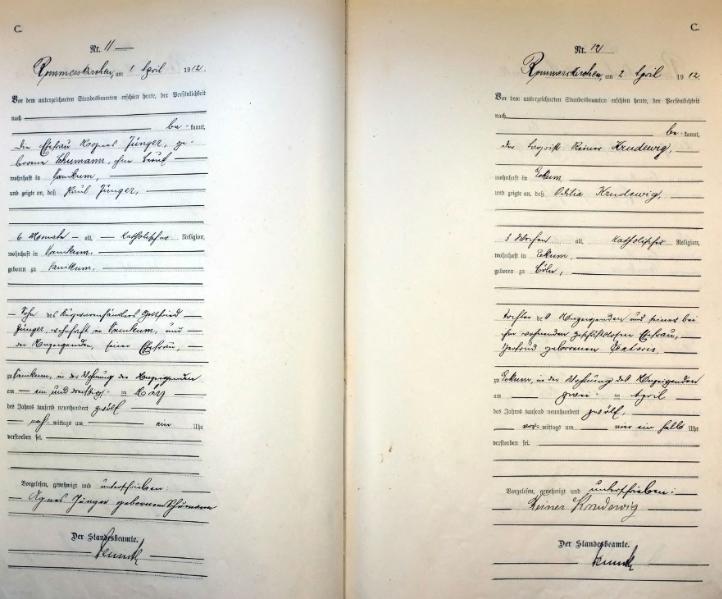 C.
Nr. 11
Rommerskirchen, am 1 April 1912.
Vor dem unterzeichneten Standesbeamten erschien heute, der Persönlichkeit
nach
be kannt,
die Ehefrau Agnes Jünger, ge-
borene Schumann, ohne Beruf
wohnhaft in
und zeigte an, daß Paul Jünger,
6 Monate alt, katholischer Religion,
wohnhaft in
geboren zu
Sohn des Gottfried
Jünger, wohnhaft in und
der Anzeigenden, seiner Ehefrau,
zu in der Wohnung der Anzeigenden
am ein und dreißigs- März
des Jahres tausend neunhundert zwölf
nach mittags um ein Uhr
verstorben sei.
Vorgelesen, genehmigt und unterschrieben:
Agnes Jünger geborenen Schumann
Der Standesbeamte.
C.
Nr. 12
Rommerskirchen, am 2 April 1912
Vor dem unterzeichneten Standesbeamten erschien heute, der Persönlichkeit
nach
be kannt,
der Reiner Krudewig,
wohnhaft in Eckum
und zeigte an, daß Odilia Krudewig,
5 Wochen alt, katholischer Religion,
wohnhaft in Eckum,
geboren zu Cöln,
Tochter des Anzeigenden und seiner bei
ihm wohnenden Ehefrau,
Gertrud geborenen
zu Eckum, in der Wohnung des Anzeigenden
am zwei April
des Jahres tausend neunhundert zwölf,
vor mittags um vier ein halb Uhr
verstorben sei.
Vorgelesen, genehmigt und unterschrieben:
Reiner Krudewig
Der Standesbeamte.